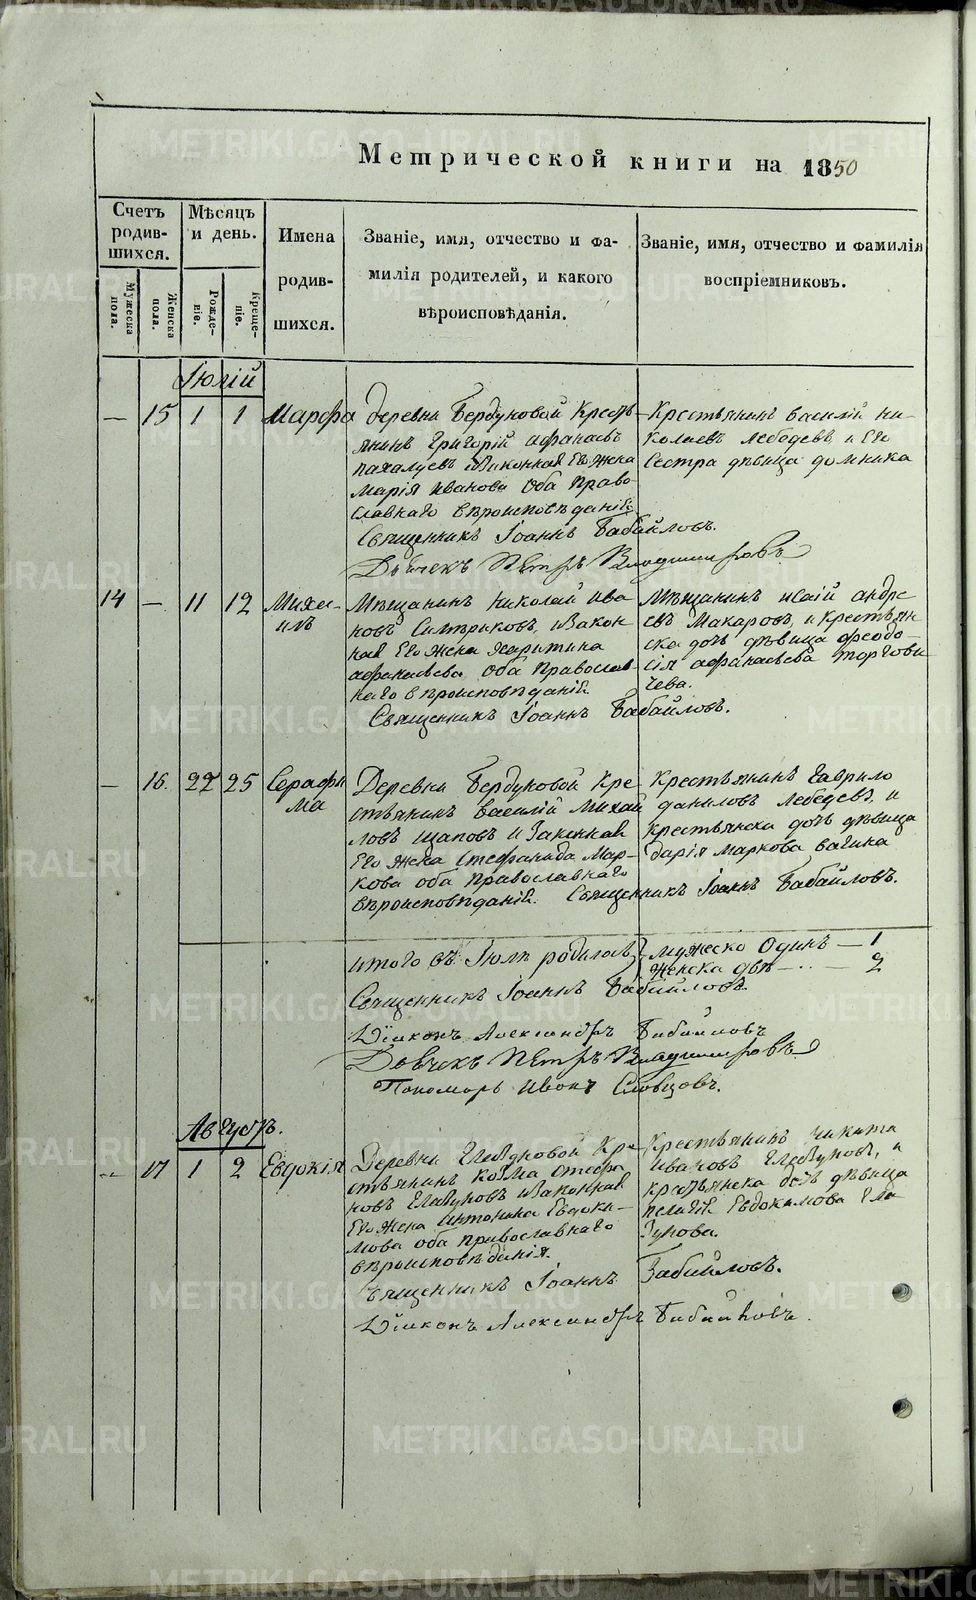 Метрической книги на 1850
Счетъ родив-шихся.
Мѣсяцъ и день.
Имена родив-шихся.
Званіе, имя, отчество и фа-
милія родителей, и какого
вѣроисповѣданія.
Званіе, имя, отчество и фамилія
воспріемниковъ.
Мужеска пола.
Женска пола.
Рожде-ніе.
Креще-ніе.
Іюлій
— 15 1 1 Марфа
деревни Бердуковой Кресть-
янинъ Григорій Афанасьевъ
и Законная Его Жена
Марія Иванова Оба Право-
славнаго вѣроисповѣданій
Священникъ Іоаннъ Бабайловъ.
Дьячекъ Петръ Владимировъ
Крестьянинъ Василій Ни-
колаевъ Лебедевъ и Его
Сестра дѣвица Домника
14 — 11 12 Миха-
илъ
Мѣщанинъ Николай Ива-
новъ и Закон-
ная Его Жена Харитина
Афанасьева Оба Православ-
наго вѣроисповѣданій.
Священникъ Іоаннъ Бабайловъ.
Мѣщанинъ Исаій Андре-
евъ Макаровъ, и Крестьян-
ска дочь дѣвица Феодо-
сія Афанасьева Торгови-
чева.
— 16. 22 25 Серафи
ма
Деревни Бердуковой Кре-
стьянинъ Василій Михай
ловъ Щаповъ и Законная
Его Жена Стефанида Мар-
кова оба Православнаго
вѣроисповѣданій. Священникъ Іоаннъ Бабайловъ.
Крестьянинъ Гаврило
Даниловъ Лебедевъ, и
Крестьянска дочь дѣвица
Дарія Маркова Вагина
итого въ Іюлѣ родилось
мужеска Одинъ — 1
женска двѣ — 2
Священникъ Іоаннъ Бабайловъ.
Діаконъ Александръ Бабайловъ
Дьячекъ Петръ Владимировъ
Пономарь Иванъ Словцовъ.
Августъ.
— 17 1 2 Евдокія
Деревни Глазуновой Кре-
стьянинъ Козма Стефа
новъ Глазуновъ и Законная
Его Жена Антонина Евдоки-
мова оба православнаго
вѣроисповѣданія.
Священникъ Іоаннъ Бабайловъ.
Діаконъ Александръ Бабайловъ.
Крестьянинъ Никита
Ивановъ Глазуновъ, и
крестьянска дочь дѣвица
Пелагія Евдокимова Гла-
зунова.
METRIKI.GASO-URAL.RU